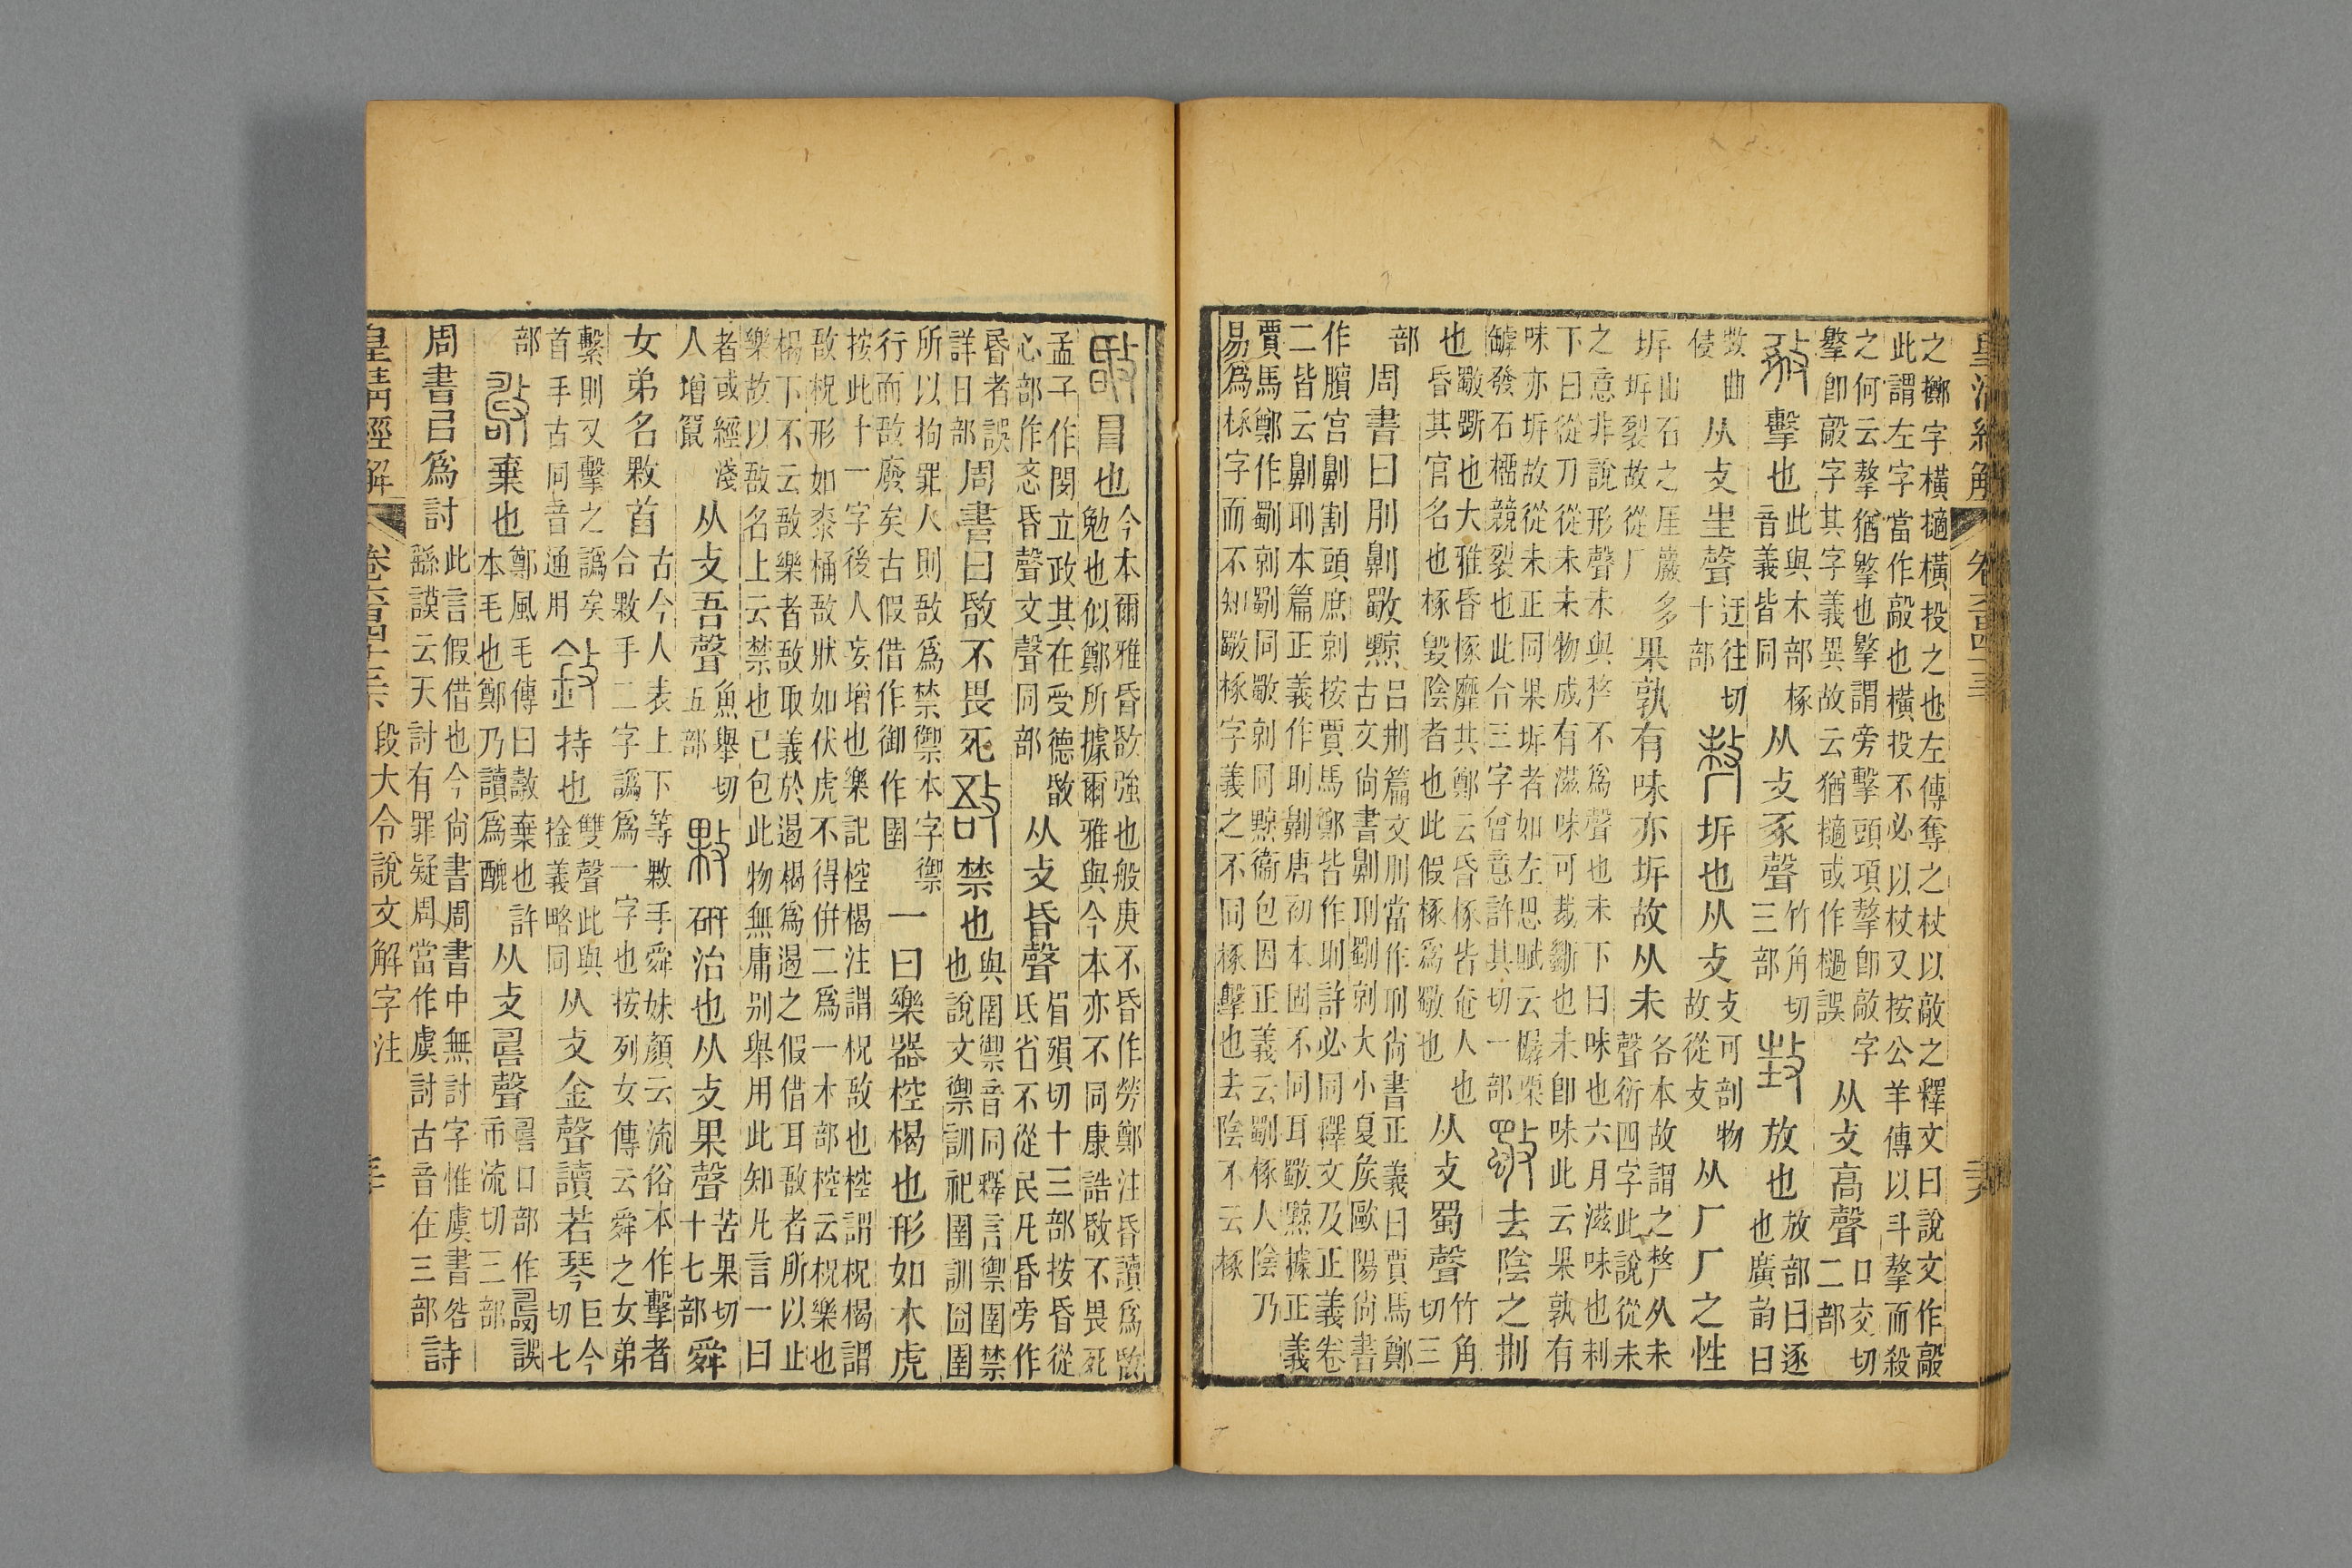 皇清經解
卷六百四十三
之擲字橫擿橫投之也左傳奪之杖以敲之釋文曰說文作敲
此謂左字當作敲也橫投不必以杖又按公羊傳以斗摮而殺
之何云摮猶擊也摮謂旁擊頭項摮卽敲字
擊卽敲字其字義異故云猶擿或作檛誤
从攴高聲
口交切
二部
擊也
此與木部椓
音義皆同
从攴豖聲
竹角切
三部
放也
放部曰逐
也廣韵曰
从攴㞷聲
迋往切
十部
坼也从攴
攴可剖物
故從攴
从厂厂之性
坼
山石之厓巖多
坼裂故從厂
果孰有味亦坼故从未
各本故謂之𠩺从未
聲衍四字此說從未
之意非說形聲未與𠩺不爲聲也未下曰味也六月滋味也利
下曰從刀從未未物成有滋味可裁斷也未卽味此云果孰有
味亦坼故從未正同果坼者如左思賦云樼栗
罅發石榴競裂也此合三字會意許其切一部
去陰之荆
也
斀斲也大雅昏椓靡共鄭云昏椓皆奄人也
昏其官名也椓毀陰者也此假椓爲斀也
从攴蜀聲
竹角
切三
部
周書曰刖劓斀黥
呂荆篇文刖當作刵尙書正義曰賈馬鄭
古文尙書劓刵劅剠大小夏矦歐陽尙書
作臏宮劓割頭庶剠按賈馬鄭皆作刵許必同釋文及正義卷
二皆云劓刵本篇正義作刵劓唐初本固不同耳斀黥據正義
賈馬鄭作劅剠劅同斀剠同黥衞包因正義云劅椓人陰乃
易爲椓字而不知斀椓字義之不同椓擊也去陰不云椓
冒也
今本爾雅昏敃強也般庚不昏作勞鄭注昏讀爲敃
勉也似鄭所據爾雅與今本亦不同康誥敃不畏死
孟子作閔立政其在受德敃
心部作忞昏聲文聲同部
从攴昏聲
眉殞切十三部按昏從
氐省不從民凡昏旁作
昬者誤
詳日部
周書曰敃不畏死
禁也
與圉禦音同釋言禦圉禁
也說文禦訓祀圉訓囹圉
所以拘罪人則敔爲禁禦本字禦
行而敔廢矣古假借作御作圉
一曰樂器椌楬也形如木虎
按此十一字後人妄增也樂記椌楬注謂柷敔也椌謂柷楬謂
敔柷形如桼桶敔狀如伏虎不得倂二爲一木部椌云柷樂也
楬下不云敔樂者敔取義於遏楬爲遏之假借耳敔者所以止
樂故以敔名上云禁也已包此物無庸别舉用此知凡言一曰
者或經淺
人增竄
从攴吾聲
魚舉切
五部
硏治也从攴果聲
苦果切
十七部
舜
女弟名敤首
古今人表上下等敤手舜妹顏云流俗本作擊者
合敤手二字譌爲一字也按列女傳云舜之女弟
繫則又擊之譌矣
首手古同音通用
持也
雙聲此與
捡義略同
从攴金聲讀若琴
巨今
切七
部
棄也
鄭風毛傳曰𣀳棄也許
本毛也鄭乃讀爲醜
从攴𠷎聲
𠷎口部作誤
帀流切三部
周書㠯爲討
此言假借也今尙書周書中無討字惟虞書咎
繇謨云天討有罪疑周當作虞討古音在三部
詩
皇清經解
卷六百四十三
段大令說文解字注